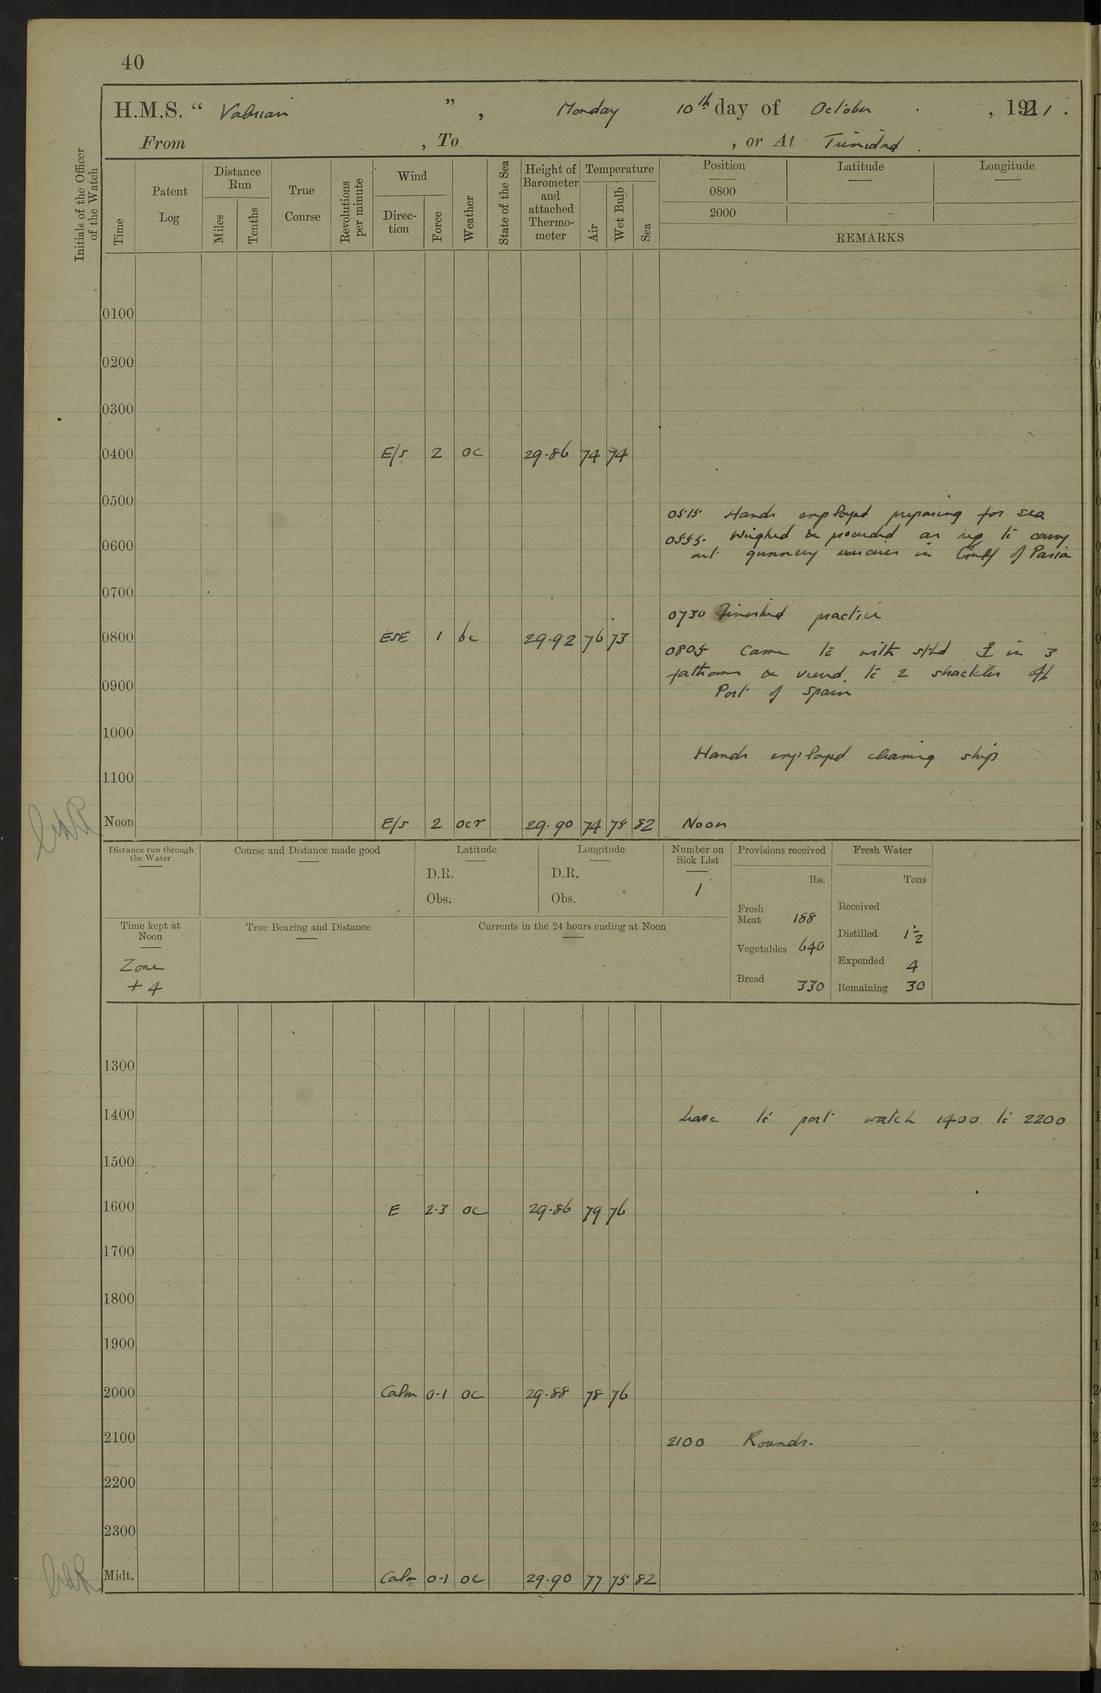 40
H.M.S. “ Valerian ” , Monday 10th day of October , 1921 .
From , To , or At Trinidad .
Initials of the Officer of the Watch
Time
Patent Log
Distance Run
Miles
Tenths
True Course
Revolutions per minute
Wind
Direc-tion
Force
Weather
State of the Sea
Height of Barometer and attached Thermo-meter
Temperature
Air
Wet Bulb
Sea
Position Latitude Longitude
0800
2000
REMARKS
0100
0200
0300
0400 E/S 2 oc 29.86 74 74
0500
0515 Hands employed preparing for sea
0555. Weighed & proceeded as req to carry
0600
out gunnery exercises in Gulf of Paria
0700
0730 Finished practice
0800 ESE 1 bc 29.92 76 73
0805 Came to with stbd ⚓ in 3
fathoms & veered to 2 shackles off
0900
Port of Spain
1000
Hands employed cleaning ship
1100
Noon E/S 2 ocr 29.90 74 75 82 Noon
Distance run through the Water
Course and Distance made good
Latitude
D.R.
Obs.
Longitude
D.R.
Obs.
Number on Sick List
1
Provisions received
lbs.
Fresh Meat 188
Vegetables 640
Bread 330
Fresh Water
Tons
Received
Distilled 1½
Expended 4
Remaining 30
Time kept at Noon
Zone
+ 4
True Bearing and Distance
Currents in the 24 hours ending at Noon
1300
1400 Leave to port watch 1400 to 2200
1500
1600 E 2.3 oc 29.86 79 76
1700
1800
1900
2000 Calm 0.1 oc 29.88 78 76
2100 2100 Rounds.
2200
2300
Midt. Calm 0.1 oc 29.90 77 75 82